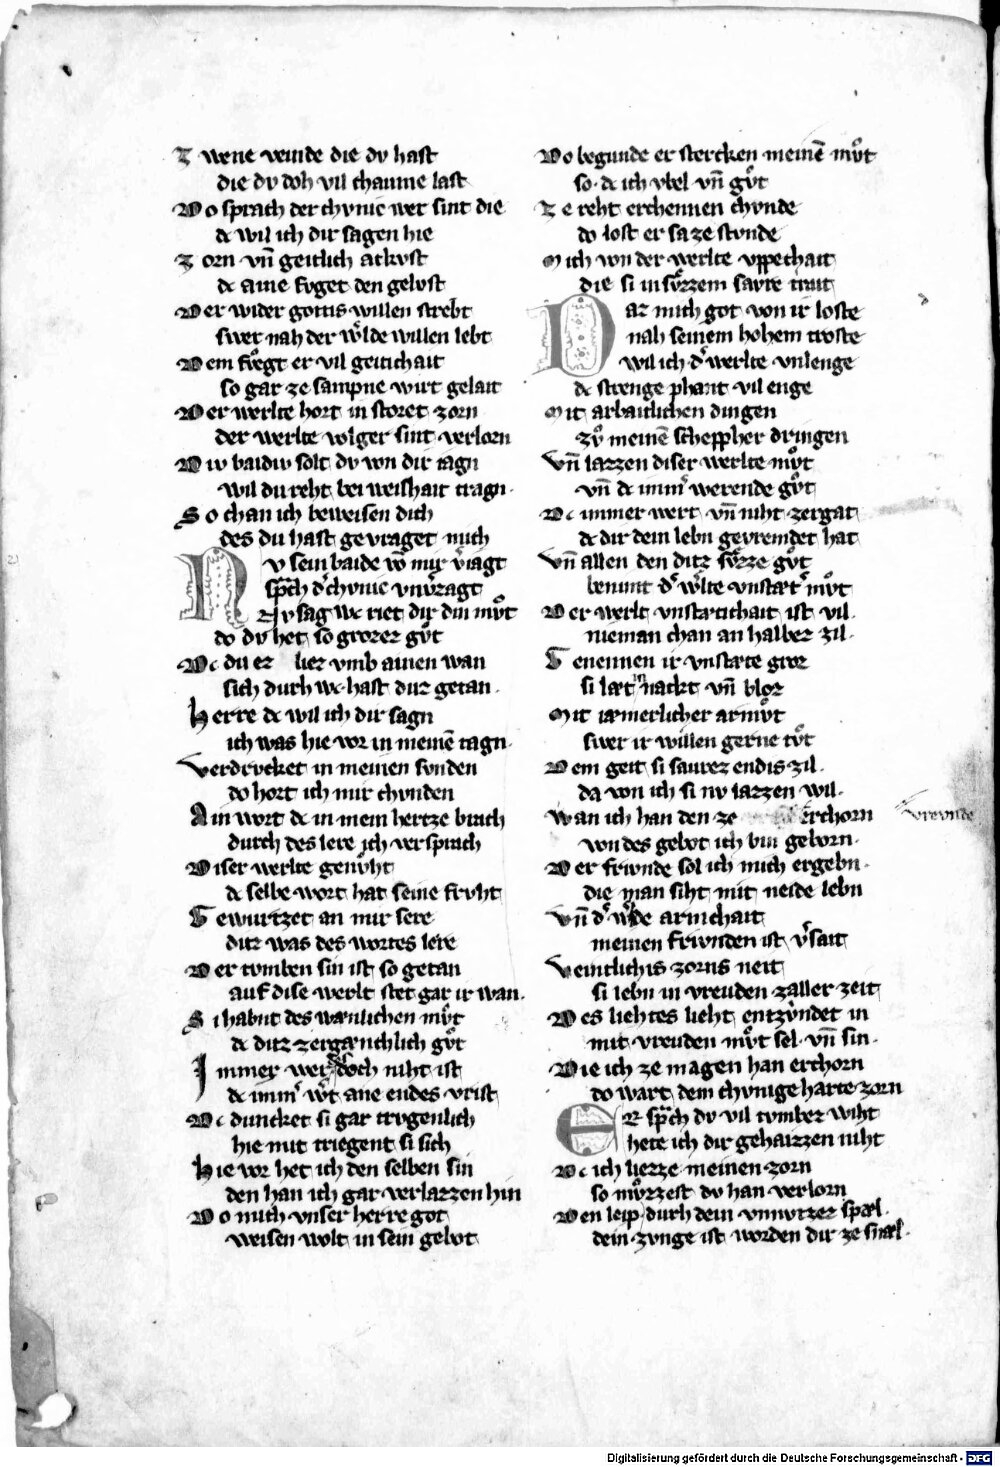 Zwene veinde die dv hast
die dv doh vil chaume last
Do sprach der chvnic wer sint die
dc wil ich dir sagen hie
Zorn vn̄ geitlich ackvst
dc aine fvget den gelvst
Der wider gottis willen strebt
swer nah der wͤlde willen lebt
Dem fvͦegt er vil geitichait
so gar ze sampne wirt gelait
Der werlte hort in storet zorn
der werlte volger sint verlorn
Div baidiv solt dv von dir iagn
wil du reht bei weishait tragn
So chan ich beweisen dich
des du hast gevraget mich
Nv sein baide vō mir v̾iagt
sp̄ch d̾ chvnic vnv̾zagt
Nv sag wc riet dir din mvͦt
do dv het so grozer gvͦt
Dc du er liez vmb ainen wan
sich durh wc hast duz getan
Herre dc wil ich dir sagn
ich was hie vor in meinē tagn
Verdrvcket in meinen svnden
do hort ich mir chvnden
Ain wort dc in mein hertze brach
durch des lere ich versprach
Diser werlte genvͦht
dc selbe wort hat seine frvht
Gewurtzet an mir sere
ditz was des wortes lere
Der tvmben sin ist so getan
auf dise werlt stet gar ir wan
Si habnt des wænlichen mvͦt
dc ditz zergænchlich gvͦt
Immer wer doch niht ist
dc imm̾ wͤt ane endes vrist
Dc duncket si gar trvgenlich
hie mit triegent si sich
Hie vor het ich den selben sin
den han ich gar verlazzen hin
Do mich vnser herre got
weisen wolt in sein gebot
Do begunde er stercken meinē mvͦt
so dc ich vbel vn̄ gvͦt
Ze reht erchennen chvnde
do lost er sa ze stvnde
Mich von der werlte vppechait
die si in svͤzzem savre trait
Daz mich got von ir loste
nah seinem hohem troste
wil ich d̾ werlte vnlenge
dc strenge phant vil enge
Mit arbaitlichen dingen
zvͦ meinē schephher dringen
Vn̄ lazzen diser werlte mvͦt
vn̄ dc imm̾ werende gvͦt
Dc immer wert vn̄ niht zergat
dc dir dein lebn gevremdet hat
Vn̄ allen den ditz svͤzze gvͦt
benimt d̾ wͤlte vnstæt̾ mvͦt
Der werlt vnstætichait ist vil
nieman chan an halbez zil
Genennen ir vnstæte groz
si læt in nackt vn̄ bloz
Mit iæmerlicher armvͦt
swer ir willen gerne tvͦt
Dem geit si saurez endis zil
da von ich si nv lazzen wil
Wan ich han den ze erchorn
vrevnde
von des gebot ich bin geborn
Der frivnde sol ich mich ergebn
die man siht mit neide lebn
Vn̄ d̾ wͤlde armchait
meinen frivnden ist v̾sait
Veintlichis zorns neit
si lebn in vreuden zaller zeit
Des liehtes lieht entzvndet in
mit vreuden mvͦt sel vn̄ sin
Die ich ze magen han erchorn
do wart dem chvnige harte zorn
Er sp̄ch dv vil tvmber wiht
hete ich dir gehaizzen niht
Dc ich liezze meinen zorn
so mvͦzzest dv han verlorn
Den leip durh dein vnnvtzez spæl
dein zvnge ist worden dir ze snæl
Digitalisierung gefördert durch die Deutsche Forschungsgemeinschaft - DFG